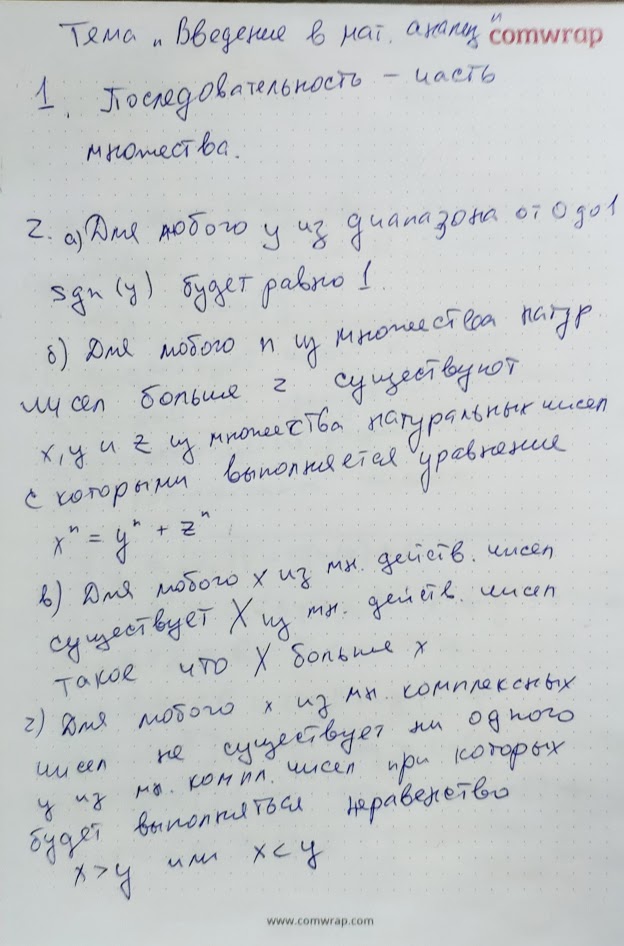 Тема „Введение в мат. анализ"
comwrap
1. Последовательность – часть
множества.
2. а) Для любого y из диапазона от 0 до 1
sgn (y) будет равно 1
б) Для любого n из множества натур.
чисел больше 2 существуют
x, y и z из множества натуральных чисел
с которыми выполняется уравнение
xⁿ = yⁿ + zⁿ
в) Для любого x из мн. действ. чисел
существует X из мн. действ. чисел
такое что X больше x
г) Для любого x из мн. комплексных
чисел не существует ни одного
y из мн. компл. чисел при которых
будет выполняться неравенство
x > y или x < y
www.comwrap.com